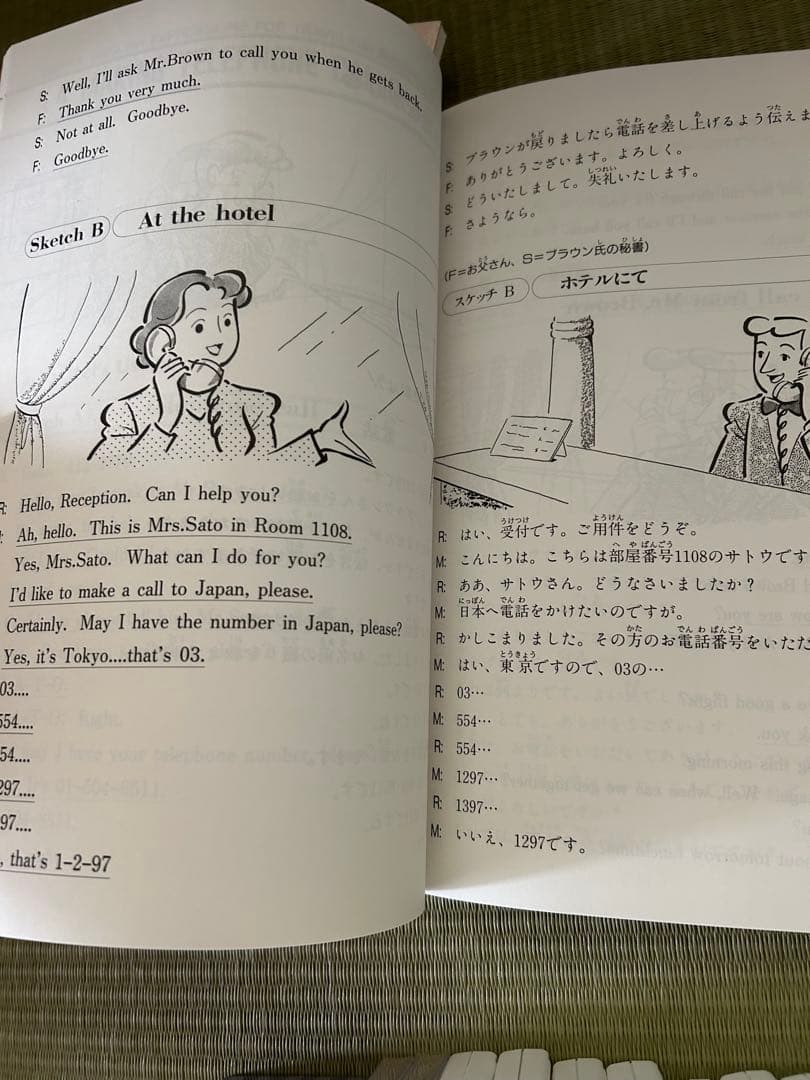 S: Well, I'll ask Mr.Brown to call you when he gets back.
F: Thank you very much.
S: Not at all. Goodbye.
F: Goodbye.
Sketch B At the hotel
R: Hello, Reception. Can I help you?
Ah, hello. This is Mrs.Sato in Room 1108.
Yes, Mrs.Sato. What can I do for you?
I'd like to make a call to Japan, please.
Certainly. May I have the number in Japan, please?
Yes, it's Tokyo....that's 03.
03....
554....
54....
297....
97....
, that's 1-2-97
S: ブラウンが戻りましたら電話を差し上げるよう伝えま
F: ありがとうございます。よろしく。
S: どういたしまして。失礼いたします。
F: さようなら。
(F=お父さん、S=ブラウン氏の秘書)
スケッチ B ホテルにて
R: はい、受付です。ご用件をどうぞ。
M: こんにちは。こちらは部屋番号1108のサトウです
R: ああ、サトウさん。どうなさいましたか？
M: 日本へ電話をかけたいのですが。
R: かしこまりました。その方のお電話番号をいただ
M: はい、東京ですので、03の…
R: 03…
M: 554…
R: 554…
M: 1297…
R: 1397…
M: いいえ、1297です。